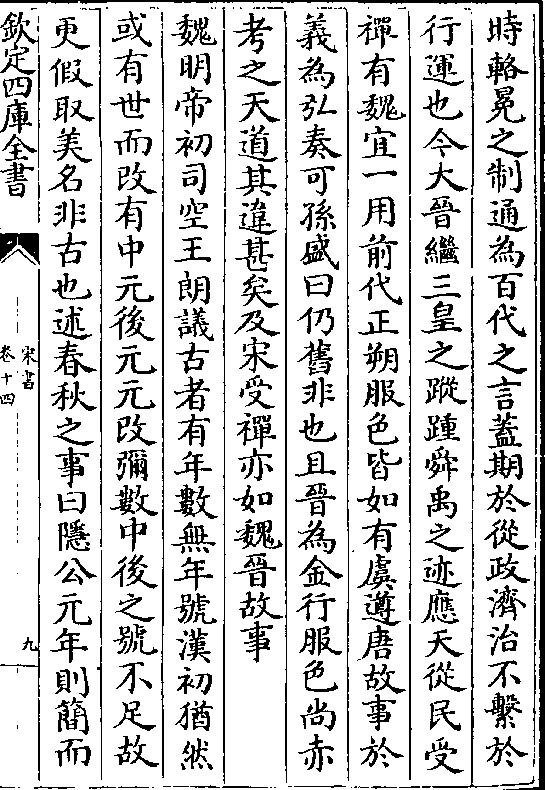 時輅冕之制通為百代之言蓋期於從政濟治不繫於
行運也今大晉繼三皇之蹤踵舜禹之迹應天從民受
禪有魏宜一用前代正朔服色皆如有虞遵唐故事於
義為弘奏可孫盛曰仍舊非也且晉為金行服色尚赤
考之天道其違甚矣及宋受禪亦如魏晉故事
魏明帝初司空王朗議古者有年數無年號漢初猶然
或有世而改有中元後元元改彌數中後之號不足故
更假取美名非古也述春秋之事曰隱公元年則簡而
欽定四庫全書
宋書
卷十四
九